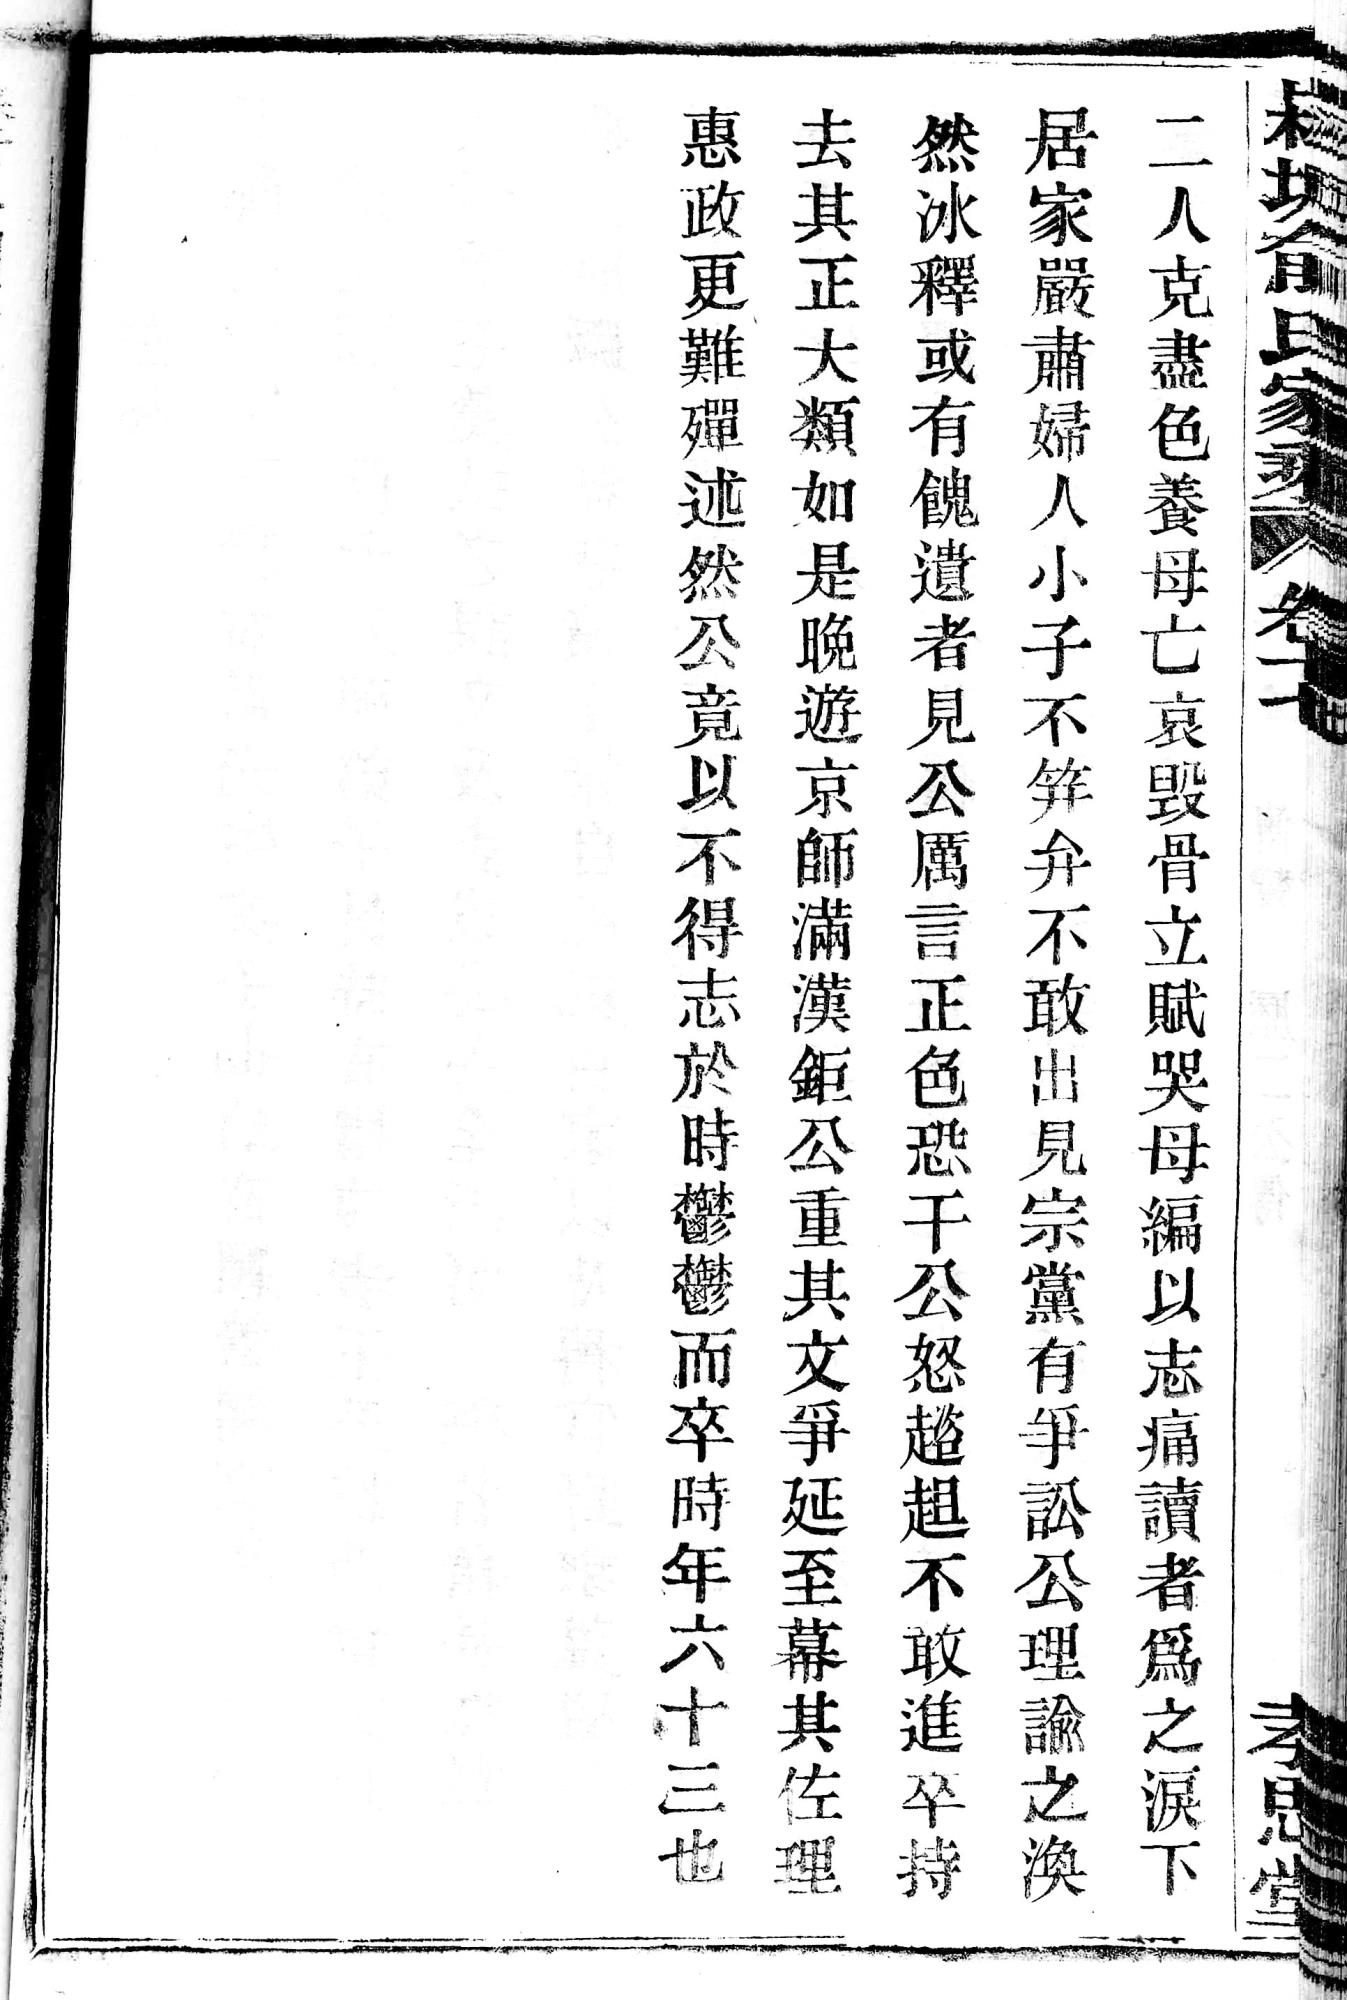 二人克盡色養母亡哀毀骨立賦哭母編以志痛讀者爲之淚下
居家嚴肅婦人小子不笄弁不敢出見宗黨有爭訟公理諭之渙
然冰釋或有餽遺者見公厲言正色恐干公怒趦趄不敢進卒持
去其正大類如是晚遊京師滿漢鉅公重其文爭延至幕其佐理
惠政更難殫述然公竟以不得志於時鬱鬱而卒時年六十三也
俞氏家乘
卷
孝思堂